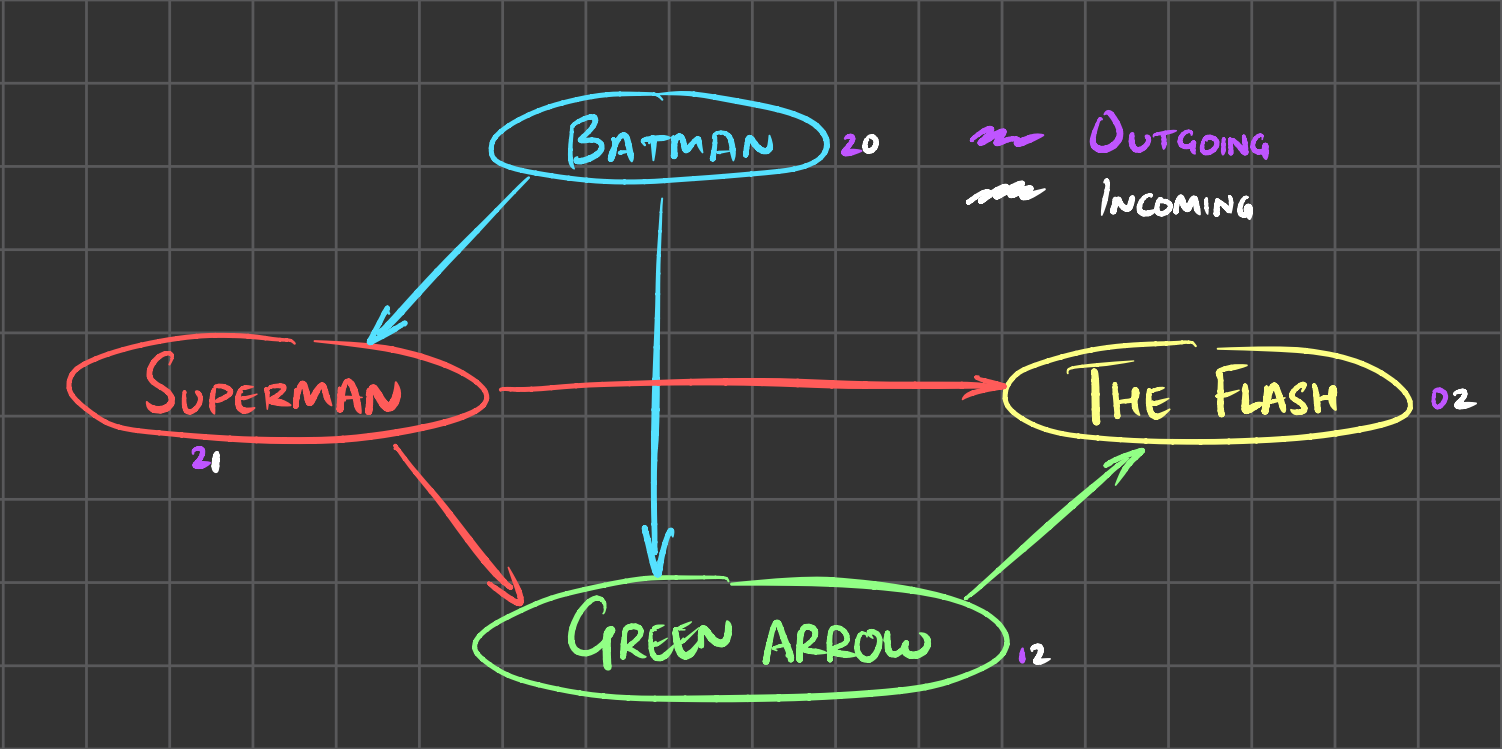 BATMAN
20
OUTGOING
INCOMING
SUPERMAN
21
THE FLASH
02
GREEN ARROW
12